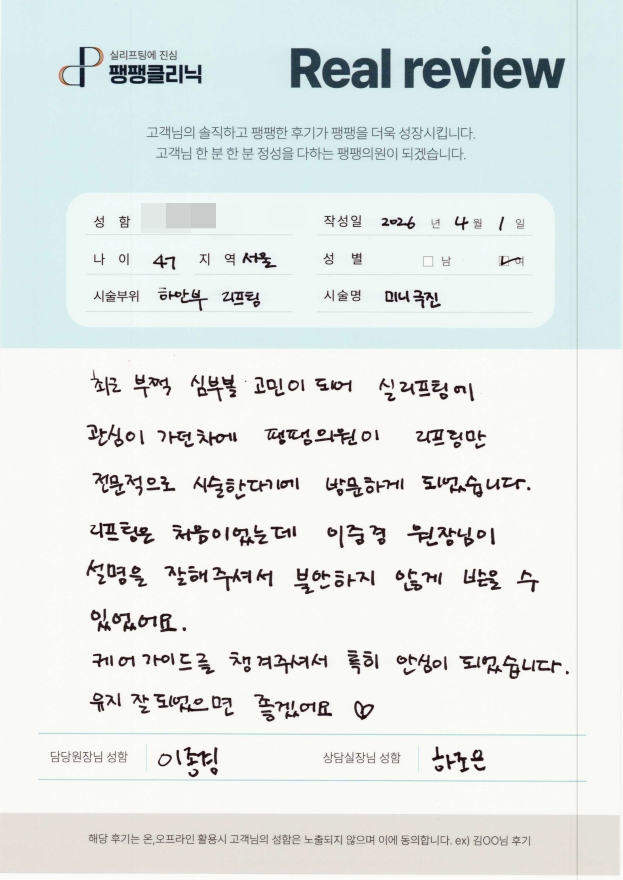 실리프팅에 진심
팽팽클리닉
Real review
고객님의 솔직하고 팽팽한 후기가 팽팽을 더욱 성장시킵니다.
고객님 한 분 한 분 정성을 다하는 팽팽의원이 되겠습니다.
성 함
작성일 2026 년 4 월 1 일
나 이 47 지 역 서울
성 별 □ 남 ☑ 여
시술부위 하안부 리프팅
시술명 미니 국진
최근 부쩍 심부볼 고민이 되어 실리프팅에
관심이 가던차에 팽팽의원이 리프팅만
전문적으로 시술한다기에 방문하게 되었습니다.
리프팅은 처음이었는데 이중경 원장님이
설명을 잘해주셔서 불안하지 않게 받을 수
있었어요.
케어가이드를 챙겨주셔서 특히 안심이 되었습니다.
유지 잘되었으면 좋겠어요 ♡
담당원장님 성함 이중경
상담실장님 성함 하조은
해당 후기는 온,오프라인 활용시 고객님의 성함은 노출되지 않으며 이에 동의합니다. ex) 김OO님 후기